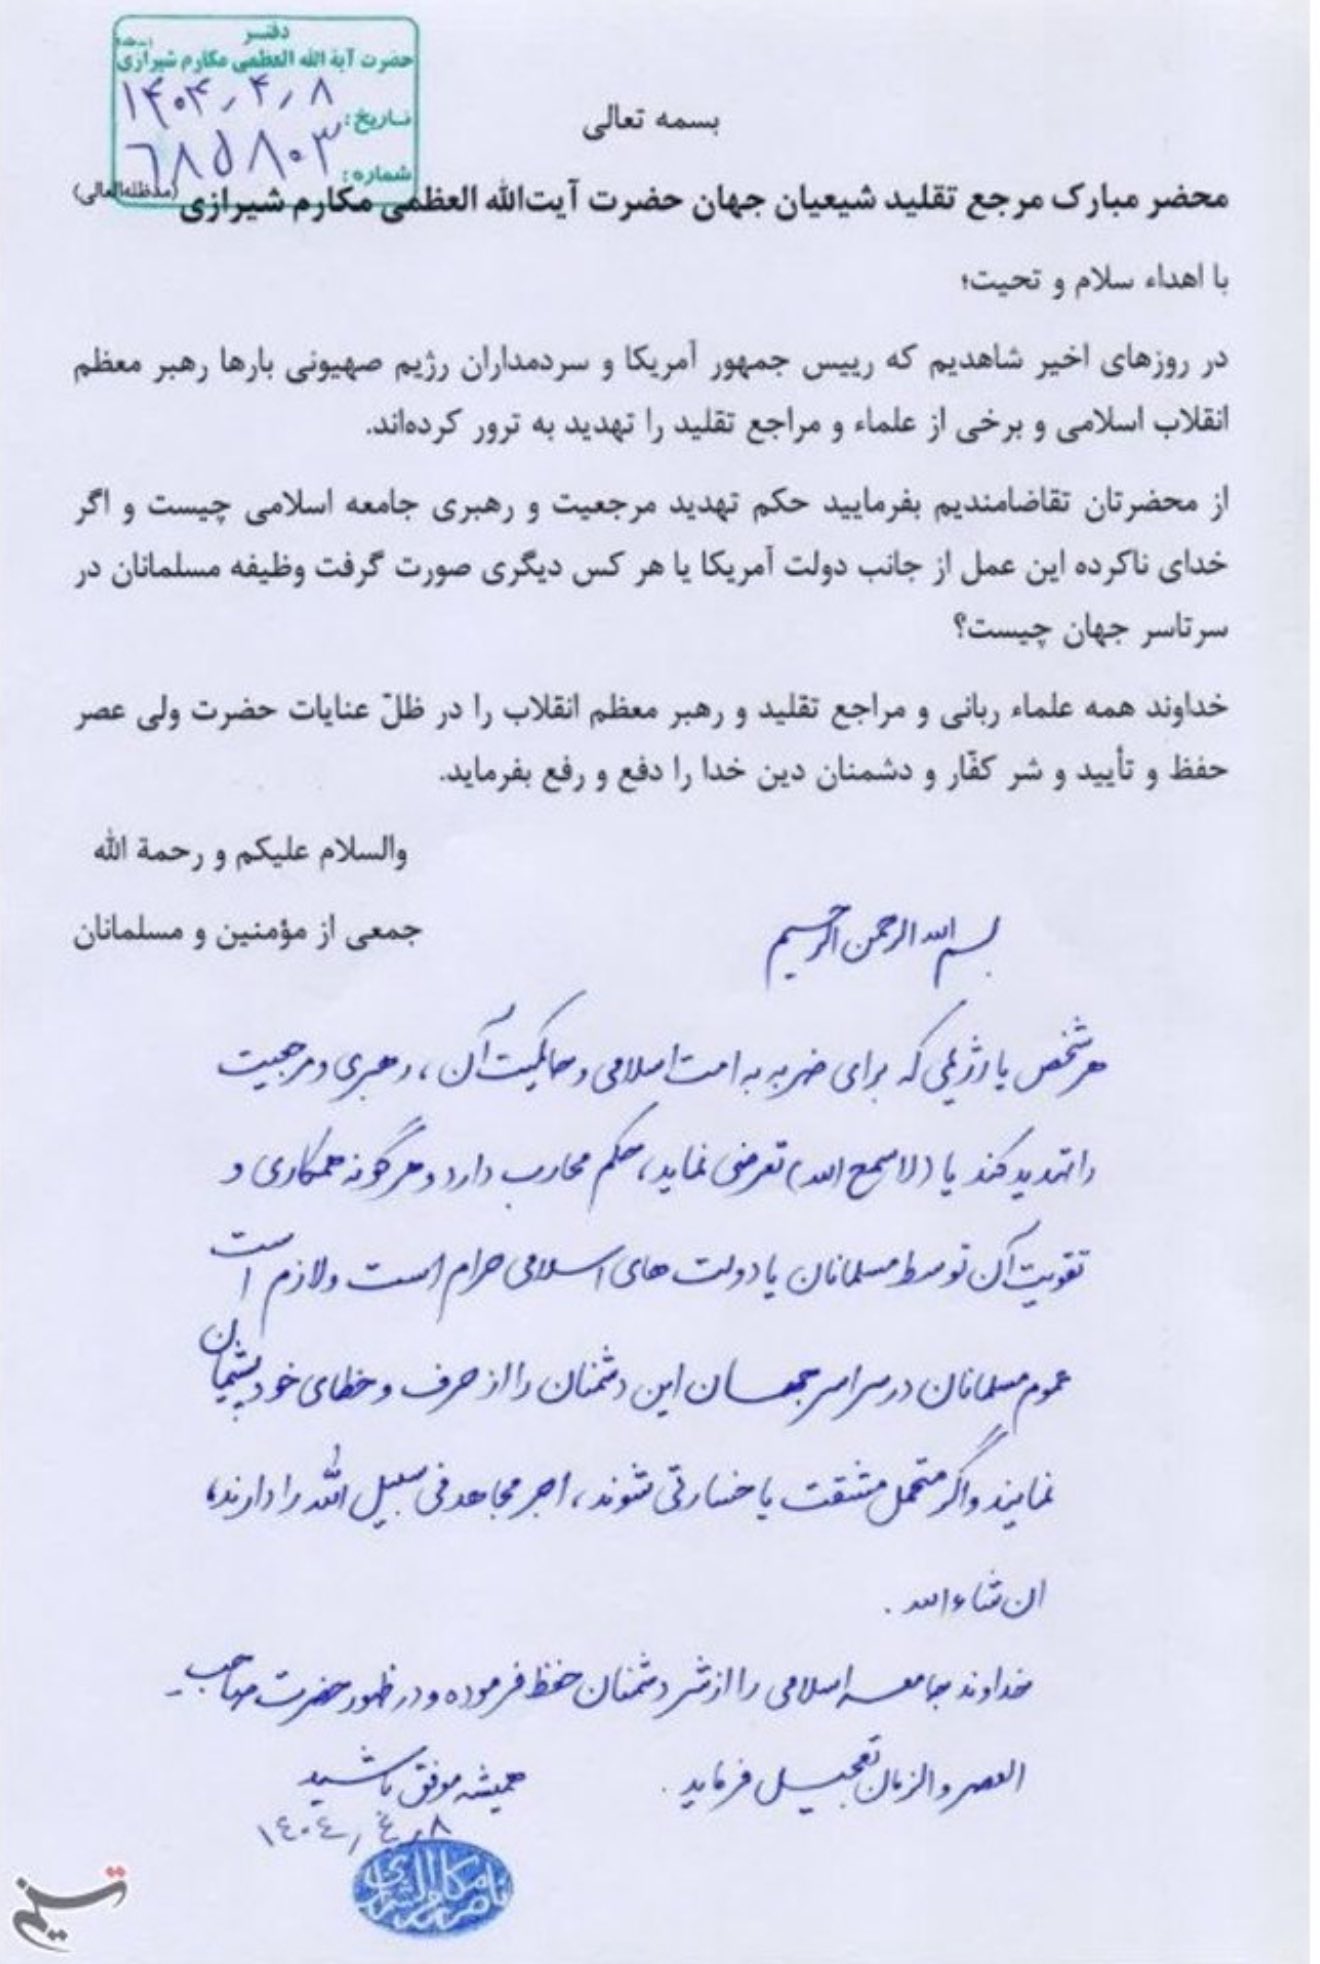 دفتر
حضرت آیة الله العظمی مکارم شیرازی
تاریخ: ۱۴۰۴٫۴٫۸
شماره: ۶۸۵۸۰۳
بسمه تعالی
محضر مبارک مرجع تقلید شیعیان جهان حضرت آیت‌الله العظمی مکارم شیرازی (مدظله‌العالی)
با اهداء سلام و تحیت؛
در روزهای اخیر شاهدیم که رییس جمهور آمریکا و سردمداران رژیم صهیونی بارها رهبر معظم
انقلاب اسلامی و برخی از علماء و مراجع تقلید را تهدید به ترور کرده‌اند.
از محضرتان تقاضامندیم بفرمایید حکم تهدید مرجعیت و رهبری جامعه اسلامی چیست و اگر
خدای ناکرده این عمل از جانب دولت آمریکا یا هر کس دیگری صورت گرفت وظیفه مسلمانان در
سرتاسر جهان چیست؟
خداوند همه علماء ربانی و مراجع تقلید و رهبر معظم انقلاب را در ظلّ عنایات حضرت ولی عصر
حفظ و تأیید و شر کفّار و دشمنان دین خدا را دفع و رفع بفرماید.
والسلام علیکم و رحمة الله
جمعی از مؤمنین و مسلمانان
بسم الله الرحمن الرحیم
هر شخص یا رژیمی که برای ضربه به امت اسلامی و حاکمیت آن، رهبری و مرجعیت
را تهدید کند یا (لاسمح الله) تعرضی نماید، حکم محارب دارد و هرگونه همکاری و
تقویت آن توسط مسلمانان یا دولت های اسلامی حرام است و لازم است
عموم مسلمانان در سراسر جهان این دشمنان را از حرف و خطای خود پشیمان
نمایند و اگر متحمل مشقت یا خسارتی شوند، اجر مجاهد فی سبیل الله را دارند،
ان شاء الله.
خداوند جامعه اسلامی را از شر دشمنان حفظ فرموده و در ظهور حضرت صاحب
العصر و الزمان تعجیل فرماید.
همیشه موفق باشید
۱۴۰۴٫۴٫۸
ناصر مکارم الشیرازی
تسنیم